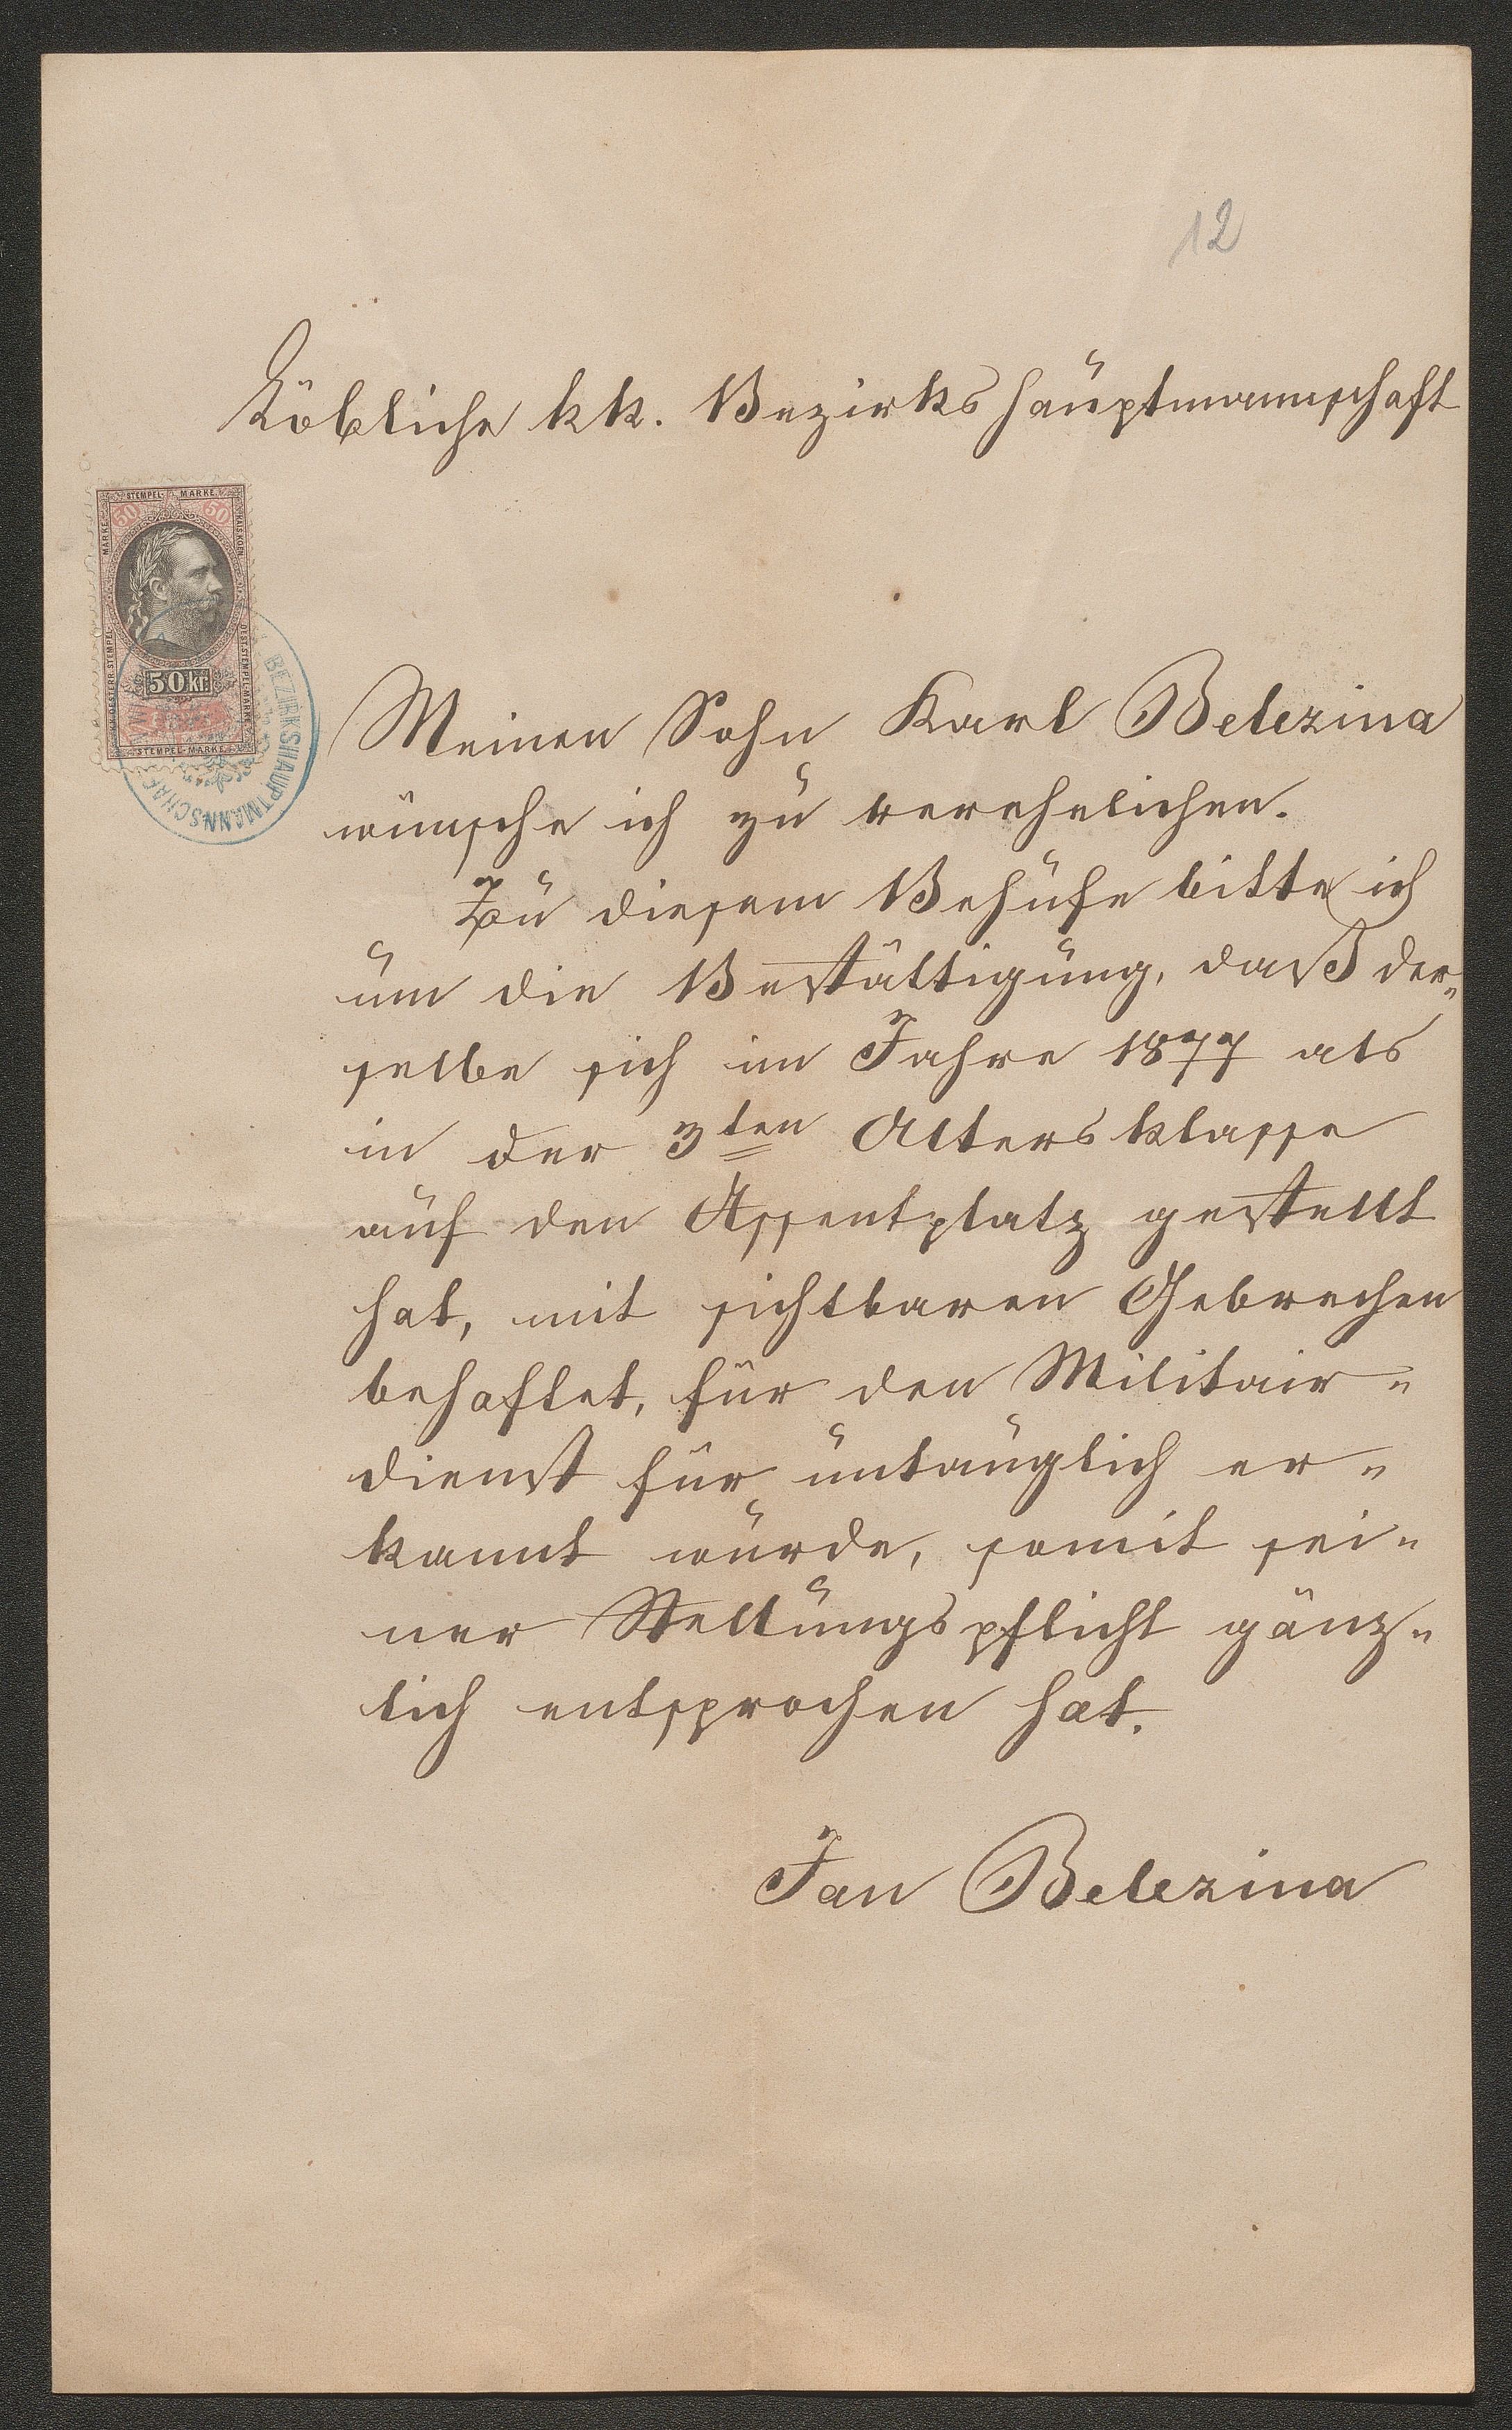 12
Löbliche kk. Bezirkshauptmannschaft
STEMPEL-MARKE
50 50
50 kr.
STEMPEL-MARKE
BEZIRKSHAUPTMANNSCHAF
Meinen Sohn Karl Belezina
wünsche ich zu verehelichen.
Zu diesem Behufe bitte ich
um die Bestättigung, daß der„
selbe sich im Jahre 1877 als
in der 3ten Altersklasse
auf den Assentplatz gestellt
hat, mit sichtbaren Gebrechen
behaftet, für den Militair„
dienst für untauglich er„
kannt wurde, somit sei„
ner Stellungspflicht gänz„
lich entsprochen hat.
Jan Belezina